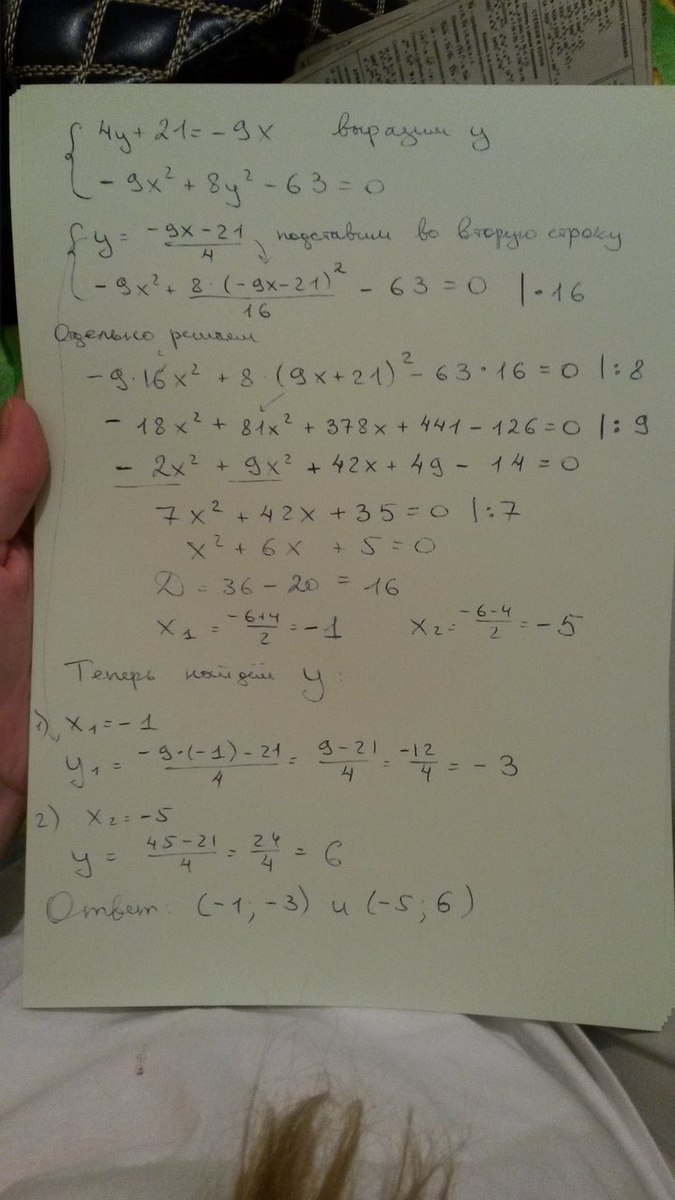 4y + 21 = -9x выразим y
-9x² + 8y² - 63 = 0
y = (-9x-21)/4 подставим во вторую строку
-9x² + 8·(-9x-21)²/16 - 63 = 0 |·16
Отдельно решаем
-9·16x² + 8·(9x+21)² - 63·16 = 0 |:8
-18x² + 81x² + 378x + 441 - 126 = 0 |:9
-2x² + 9x² + 42x + 49 - 14 = 0
7x² + 42x + 35 = 0 |:7
x² + 6x + 5 = 0
D = 36 - 20 = 16
x₁ = (-6+4)/2 = -1 x₂ = (-6-4)/2 = -5
Теперь найдём y:
1) x₁ = -1
y₁ = (-9·(-1)-21)/4 = (9-21)/4 = -12/4 = -3
2) x₂ = -5
y = (45-21)/4 = 24/4 = 6
Ответ: (-1, -3) и (-5; 6)